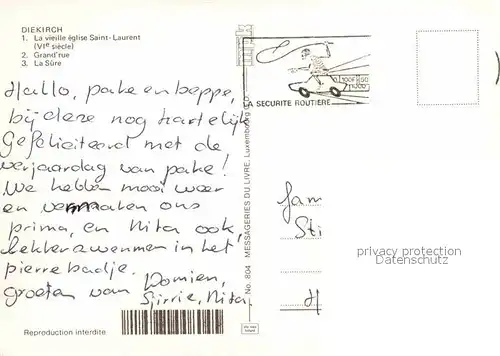 DIEKIRCH
1. La vieille église Saint-Laurent
(VIe siècle)
2. Grand'rue
3. La Sûre
Hallo, pake en beppe,
bij deze nog hartelijk
Gefeliciteerd met de
verjaardag van pake!
We hebben mooi weer
en vermaken ons
prima, en Nita ook,
lekker zwemmen in het
pierre badje.
groeten van Domien,
Sjirrie, Nita.
Reproduction interdite
No. 804 MESSAGERIES DU LIVRE, Luxembourg
LA SECURITE ROUTIERE
Jam
Sti
privacy protection
Datenschutz